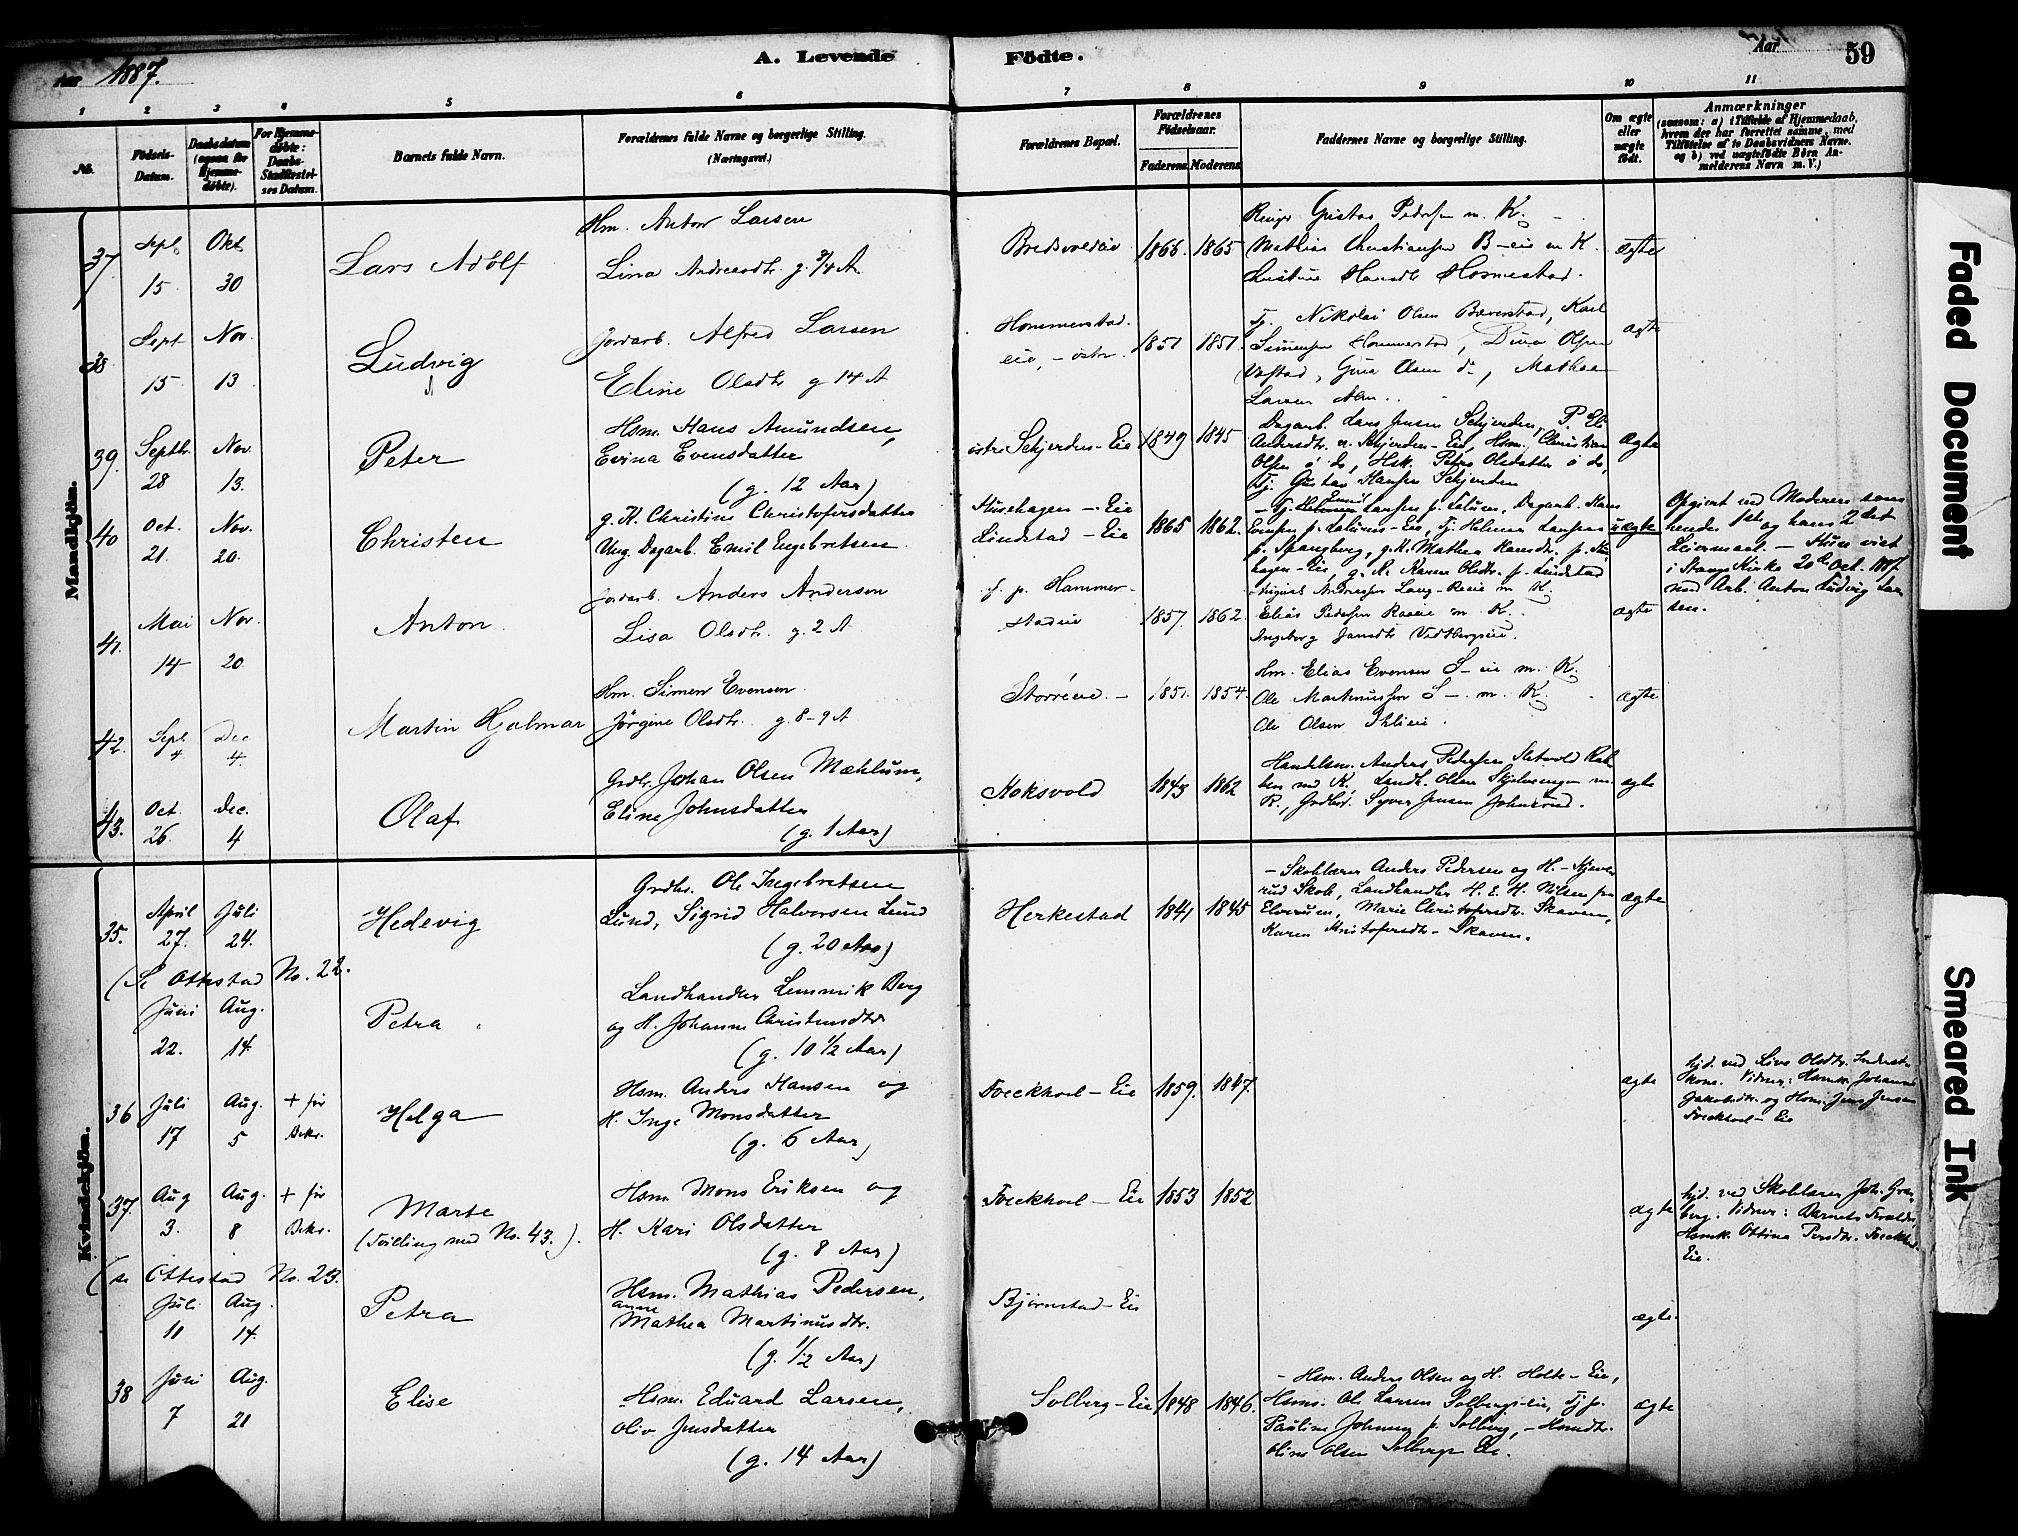 Aar 1887.
A. Levende Fødte.
Aar
59
1 2 3 4 5 6 7 8 9 10 11
No.
Fødsels-Datum.
Daabsdatum (ogsaa for Hjemmedøbte).
For Hjemmedøbte: Daabs-Stadfæstelses Datum.
Barnets fulde Navn.
Forældrenes fulde Navne og borgerlige Stilling. (Næringsvei.)
Forældrenes Bopæl.
Forældrenes Fødselsaar.
Faderens. Moderens.
Faddernes Navne og borgerlige Stilling.
Om ægte eller uægte født.
Anmærkninger
(saasom: a) i Tilfælde af Hjemmedaab, hvem der har forrettet samme, med Tilføielse af to Daabsvidners Navne, og b) ved uægtefødte Børn Anmelderens Navn m.V.)
Mandkjøn.
37
Sept 15
Okt 30
Lars Adolf
Hm. Anton Larsen
Lina Andreasdtr. g. 3/4 A.
1866. 1865
Gustav Pedersen m. K.
Mathias Christiansen B-eie m K.
ægte
38
Sept 15
Nov. 13
Ludvig
Jordarb. Alfred Larsen
Eline Olsdtr g 14 A
Hommerstad-
eie, - østr.
1851 1851.
Tj. Nikolai Olsen Bærestad, Karl
Simensen Hommerstad, Dina Olsen
Gina Olsen do, Mathea
Larsen
ægte
39.
Septbr. 28
Nov. 13.
Peter
Hsm. Hans Amundsen,
Evina Evensdatter
(g. 12 Aar)
østre Schjerden-Eie
1849 1845
Dagarb. Lars Jensen Schjerden, P. Eli
Andersdtr. n. Schjerden-Eie, Hsm. Christian
Olsen ø do, Hsk. Petra Olsdatter ø do,
Tj. Gustav Hansen Schjerden
ægte
40
Oct. 21.
Nov. 20.
Christen
g. K. Christine Christofersdatter
Ung. Dagarb. Emil Engebretsen
Husehagen-Eie
Lindstad-Eie
1865 1862.
p. Spangberg, g. K. Mathea
hagen-Eie, g. K. Karen Olsdtr. p. Lindstad
uægte
Opgivet ved Moderen som
hendes 1ste og hans 2det
Leiermaal. - Hun viet
i Stange Kirke 20de Oct. 1887
med Arb. Anton Ludvig Lar
sen.
41.
Mai 14
Nov. 20
Anton
Jordarb. Anders Andersen
Lisa Olsdtr. g. 2 A
f. p. Hammer-
stadeie
1857. 1862.
Elias Pedersen Raaeie m K.
Ingeborg Jansdtr
ægte
42.
Sept. 4
Dec 4.
Martin Hjalmar
Hm. Simen Evensen
Jørgine Olsdtr. g. 8-9 A
Storreeie -
1851. 1854.
Hm. Elias Evensen S-eie m. K.
Ole Martinusen S-. m. K.
Ole Olsen Ihleeie.
ægte
43.
Oct. 26.
Dec. 4
Olaf
Grdbr. Johan Olsen Mæhlum,
Eline Johnsdatter
(g. 1 Aar)
Koksvold
1843 1862
Handelsm. Anders Pedersen
K., Grdbr. Syver Jensen Johnsrud.
ægte
Kvindekjøn.
35.
April 27.
Juli 24.
Hedevig
Grdbr. Ole Ingebretsen
Lund, Sigrid Halvorsen Lund
(g. 20 Aar)
Herkestad
1841 1845
- Skolelærer Anders Pedersen og H. - Kjeve
rud Skole, Landhandler H. E. H. Nilsen fra
Elverum, Marie Christofersdtr. Skaven,
Karen Kristofersdtr. Skaven.
ægte
(Se Ottestad No. 22.
Juni 22.
Aug. 14.
Petra
Landhandler Lemmik Berg
og H. Johanne Christensdtr
(g. 10 1/2 Aar)
36
Juli 17
Aug. 5
+ før Bekr.
Helga
Hsm. Anders Hansen og
H. Inge Monsdatter
(g. 6 Aar)
Foeckhoel-Eie
1859. 1847.
ægte
hjd. ved Live Olsdtr.
Vidner: Hsmk. Johanne
Jakobsdtr. og Hsm. Jens Jensen
Foeckhoel-Eie
37.
Aug 3.
Aug. 8
+ før Bekr.
Marte
(Tvilling med No. 43.).
Hsm. Mons Eriksen og
H. Kari Olsdatter
(g. 8 Aar)
Foeckhoel-Eie
1853 1852
ægte
hjd. ved Skolelærer Joh. Gra
berg. Vidner: Barnets Forældre,
Hsmk. Ottina Persdtr. Foeckhoel-
Eie.
(se Ottestad No. 23.
Juli 11
Aug. 14.
Petra
Hsm. Mathias Pedersen,
anne
Mathea Martinusdtr.
(g. 1/2 Aar)
Bjørnstad-Eie
ægte.
38
Juni 7
Aug. 21
Elise
Hsm. Eduard Larsen,
Oliv Jensdatter
(g. 14 Aar)
Solberg-Eie
1848 1846.
- Hsm. Anders Olsen og H. Holte-Eie,
Hsm. Ole Larsen Solbergs-Eie, Tj. p.
Pauline Johnsen p. Solberg, - Hsmdtr.
Oline Olsen Solbergs Eie.
ægte
Faded Document
Smeared Ink